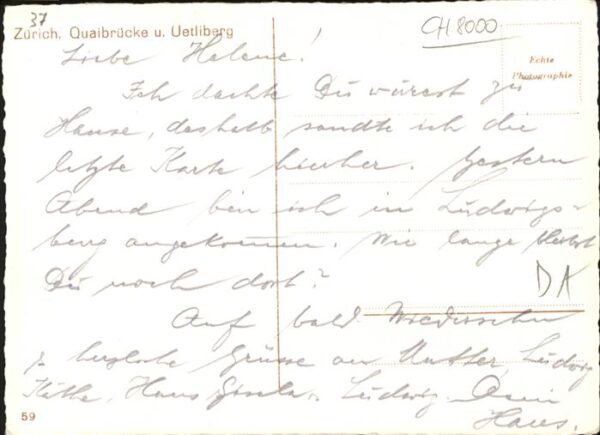 37
Zürich. Quaibrücke u. Uetliberg
CH 8000
Echte
Photographie
Liebe Helene!
Ich dachte Du wärest zu
Hause, deshalb sandte ich die
letzte Karte hierher. Gestern
Abend bin ich in Ludwigs-
berg angekommen. Wie lange bleibst
Du noch dort?
DK
Auf bald. Wiedersehen
herzliche Grüsse an Mutter, Ludwig
Käthe, Hans, Gisela, Ludwig. Dein
Hans.
59